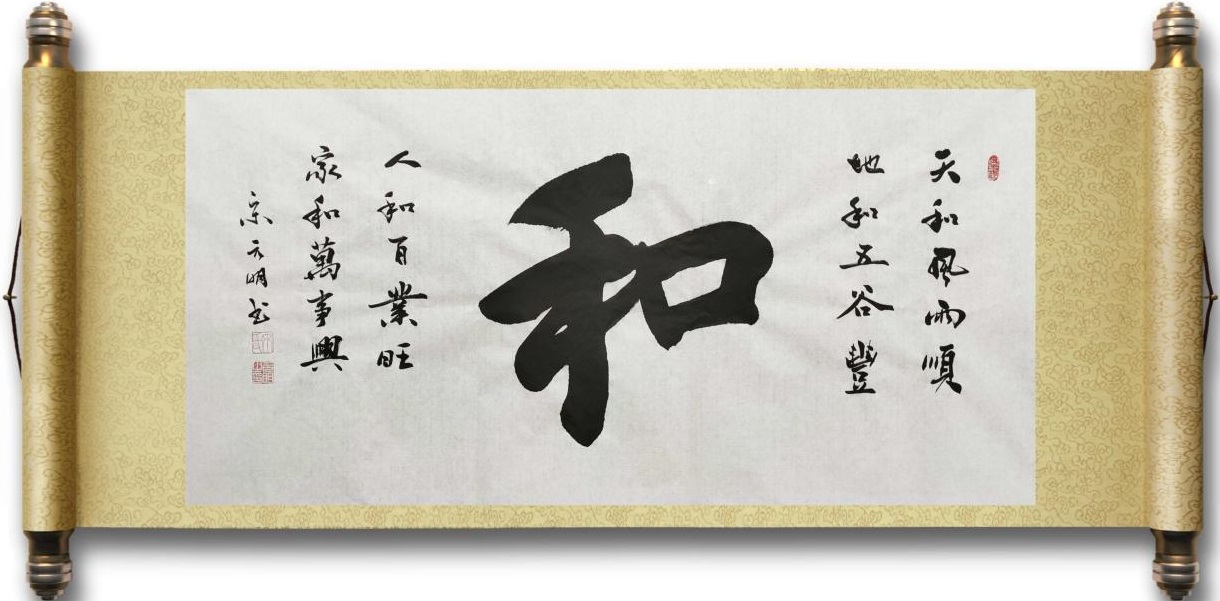 天和風雨順
地和五谷豐
和
人和百業旺
家和萬事興
宗元明书